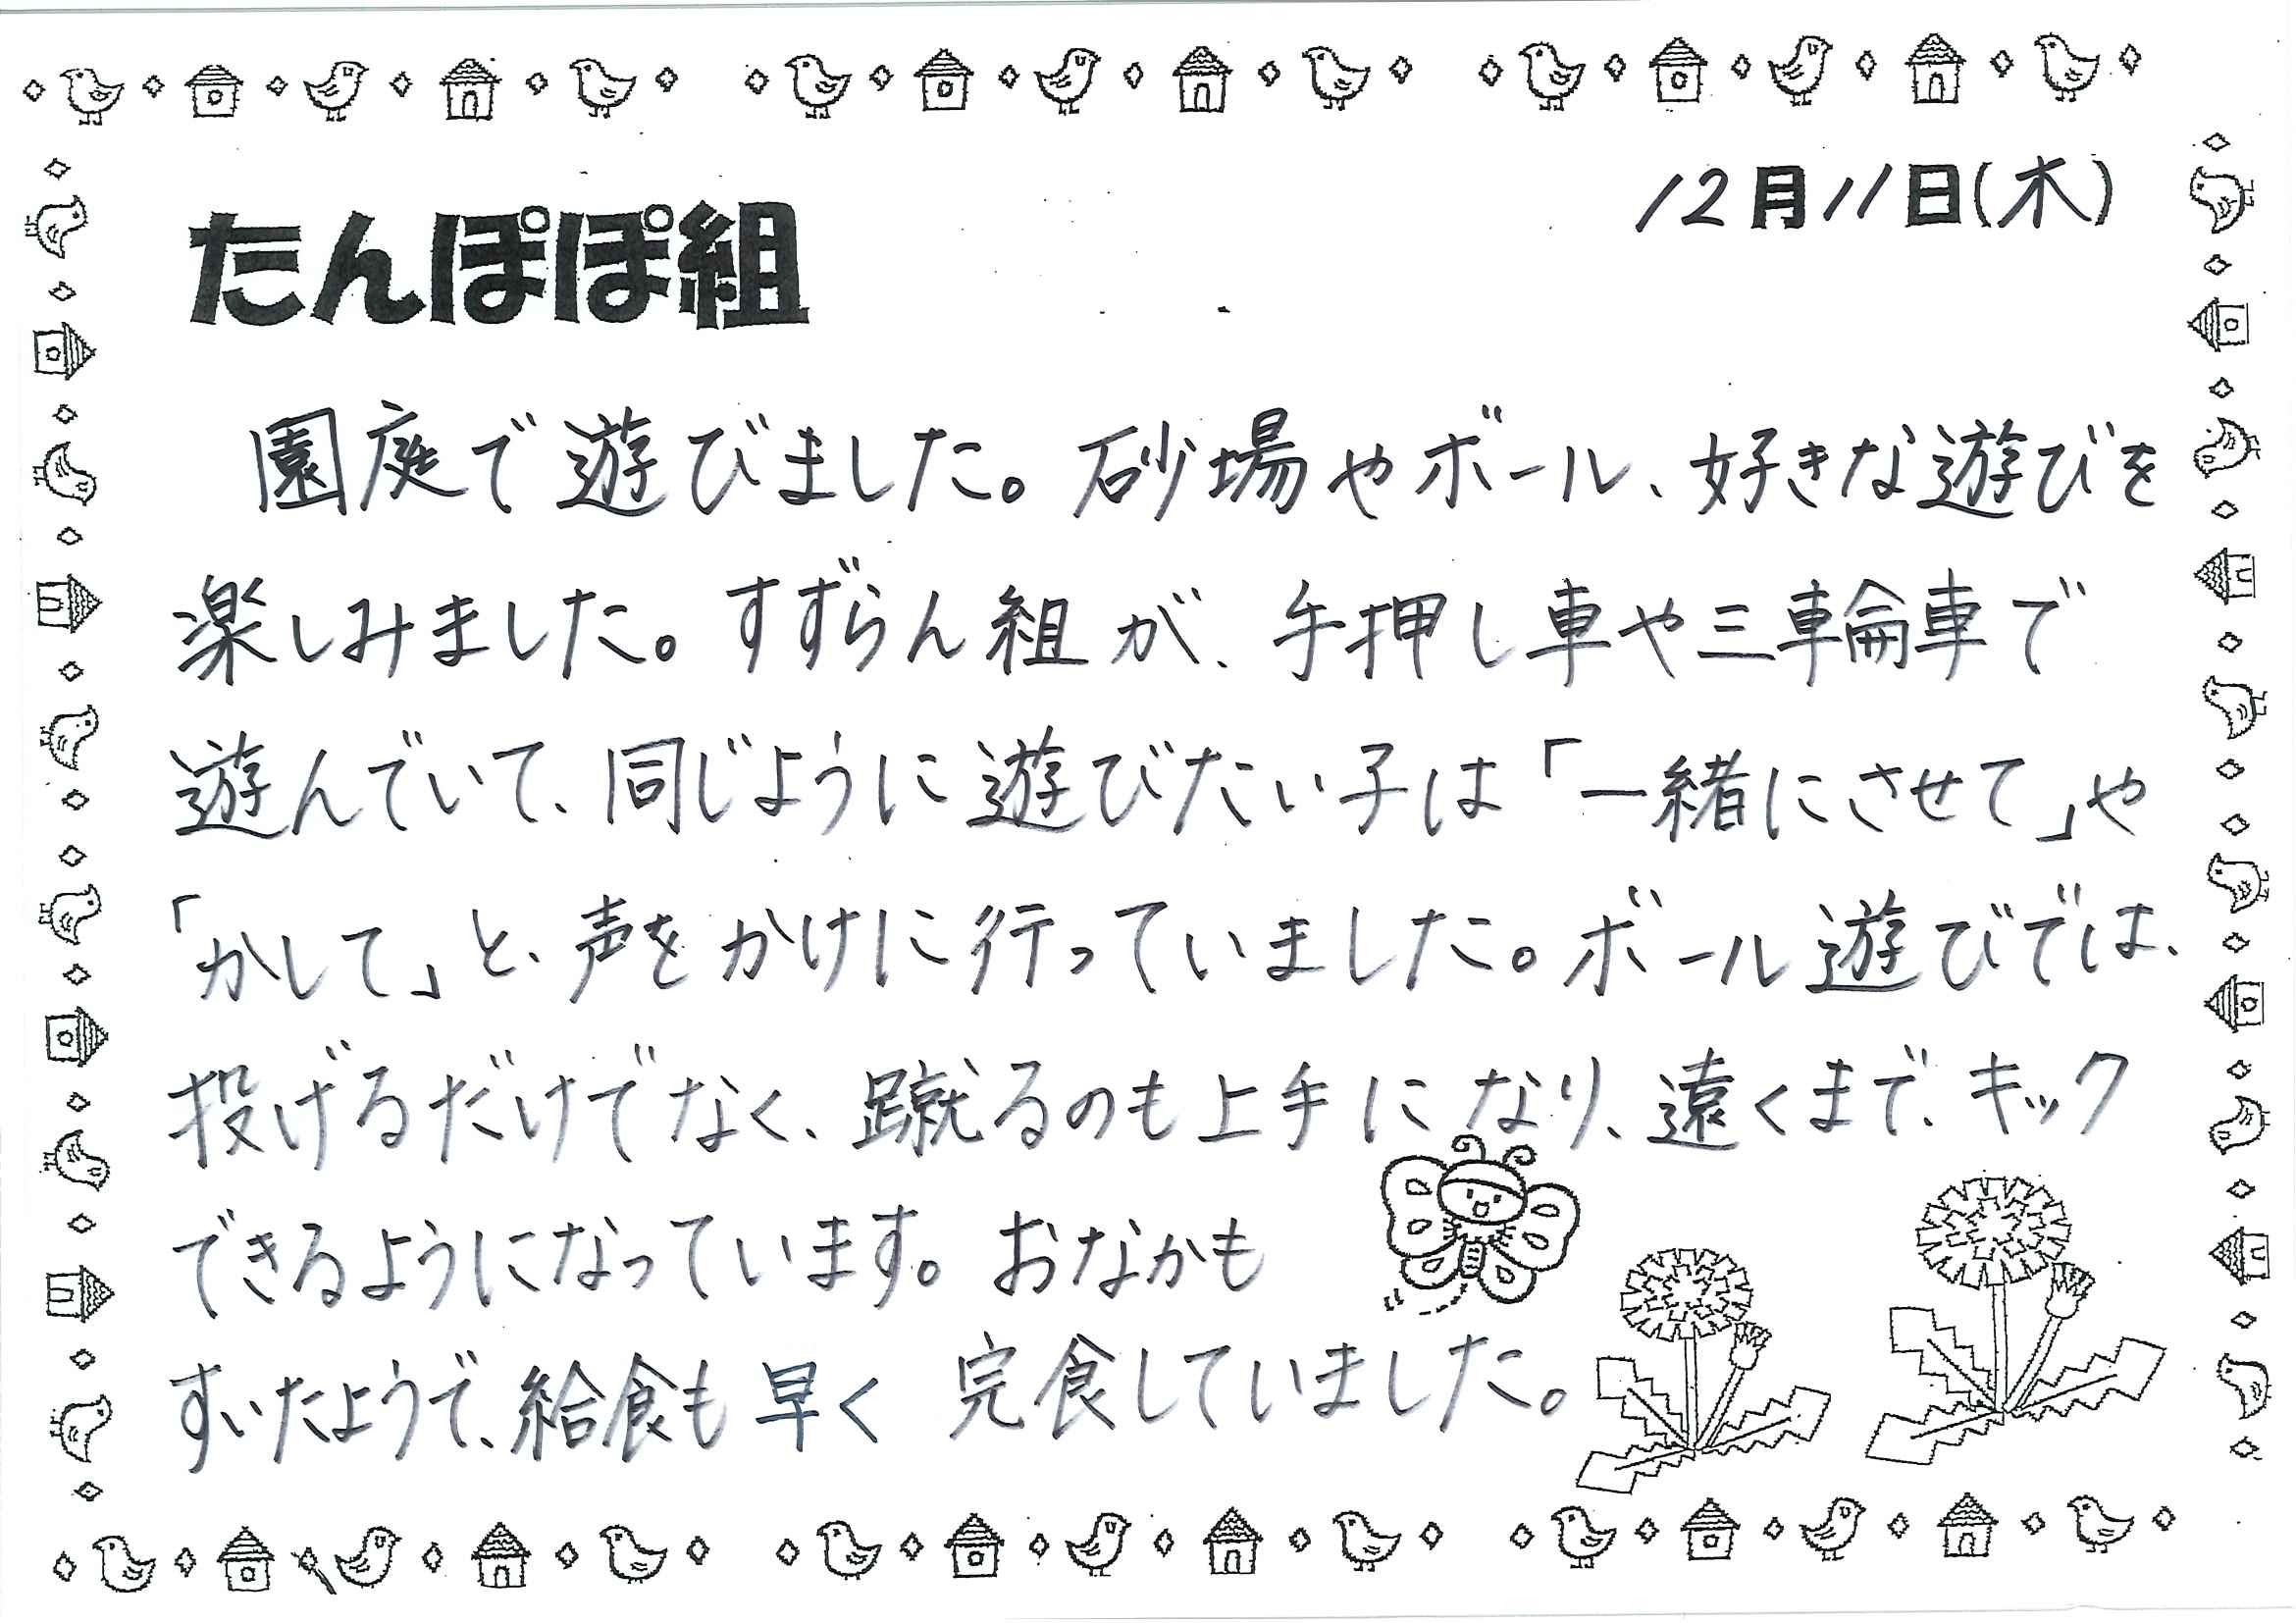 12月11日(木)
たんぽぽ組
園庭で遊びました。砂場やボール、好きな遊びを
楽しみました。すずらん組が、手押し車や三車輪車で
遊んでいて、同じように遊びたい子は「一緒にさせて」や
「かして」と、声をかけに行っていました。ボール遊びでは、
投げるだけでなく、蹴るのも上手になり、遠くまで、キック
できるようになっています。おなかも
すいたようで、給食も早く 完食していました。